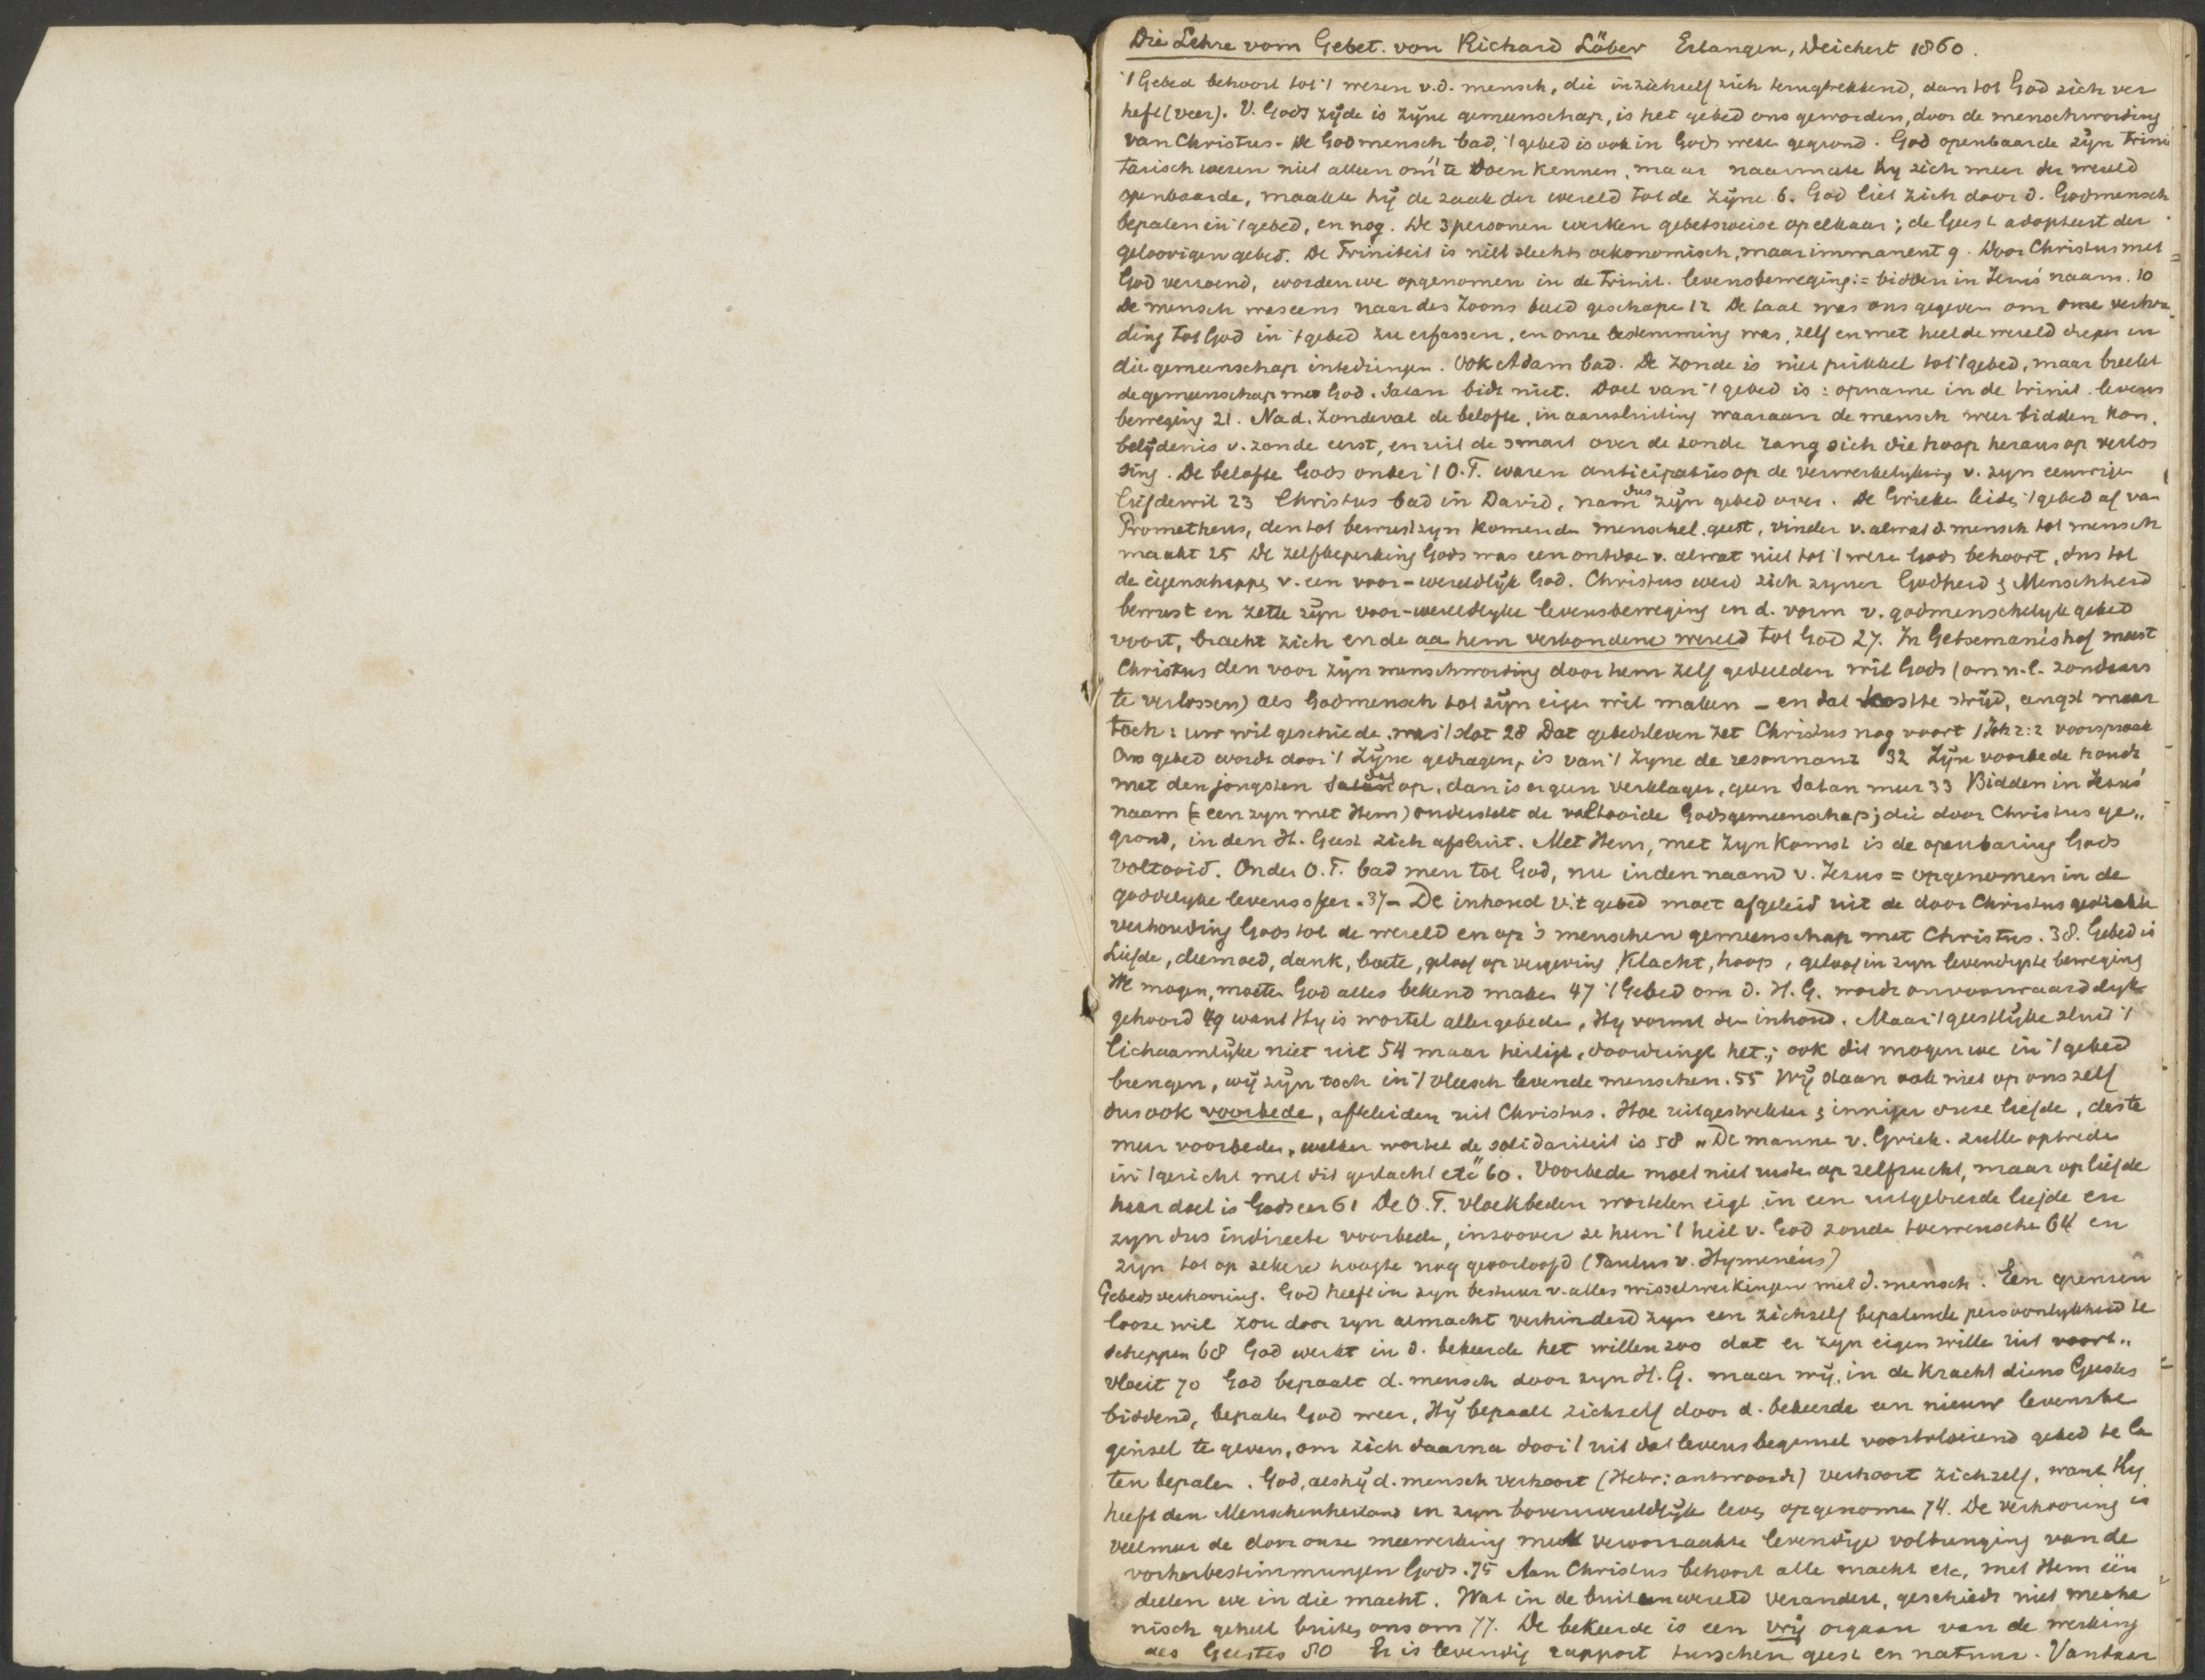 Die Lehre vom Gebet. von Richard Löber Erlangen, Deichert 1860.
't Gebed behoort tot 't wezen v.d. mensch, die inzichzelf zich terugtrekkend, dan tot God zich ver
heft (veer). V. Gods zijde is zijne gemeenschap, is het gebed ons geworden, door de menschwording
van Christus. De Godmensch bad, 't gebed is ook in Gods weze gegrond. God openbaarde zijn trini
tarisch wezen niet alleen om 't te doen kennen, maar naarmate hy zich meer der wereld
openbaarde, maakte hij de zaak der wereld tot de zijne 6. God liet zich door d. Godmensch
bepalen in 't gebed, en nog. De 3 personen werken gebetsweise op elkaar; de Geest adopteert der
geloovigen gebed. De Triniteit is niet slechts oekonomisch, maar immanent 9. Door Christus met
God verzoend, worden we opgenomen in de trinit. levensbeweging := bidden in Jezus' naam. 10
De mensch was eens naar des Zoons beeld geschape 12 De taal was ons gegeven om onze verhou
ding tot God in 't gebed zu erfassen, en onze bestemming was, zelf en met heel de wereld dieper in
die gemeenschap intedringen. Ook Adam bad. De zonde is niet prikkel tot 't gebed, maar breekt
de gemeenschap met God. Satan bidt niet. Doel van 't gebed is: opname in de trinit. levens
beweging 21. Na d. zondeval de belofte, in aansluiting waaraan de mensch weer bidden kon,
belijdenis v. zonde eerst, en uit de smart over de zonde rang sich die hoop heraus op verlos
sing. De belofte Gods onder 't O.T. waren anticipaties op de verwerkelyking v. zyn eeuwige
liefdewil 23 Christus bad in David, nam dus zijn gebed over. De Grieke leide 't gebed af van
Prometheus, den tot bewustzyn komende menschel. geest, vinder v. alwat d. mensch tot mensch
maakt 25 De zelfbeperking Gods was een ontdoe v. alwat niet tot 't weze Gods behoort, dus tot
de eigenschappe v. een voor-wereldlijk God. Christus werd zich zyner Godheid & Menschheid
bewust en zette zijn voor-wereldlyke levensbeweging in d. vorm v. godmenschelyk gebed
voort, bracht zich en de aa hem verbondene wereld tot God 27. In Getsemané's hof moest
Christus den voor zijn menschwording door hem zelf gedeelden wil Gods (om n.l. zondaars
te verlossen) als Godmensch tot zijn eigen wil maken – en dat kostte strijd, angst maar
toch: uw wil geschiede. was 't slot 28 Dat gebedsleven zet Christus nog voort 1 Joh 2:2 voorspraak
Ons gebed wordt door 't Zijne gedragen, is van 't Zyne de resonnanz 32 Zijn voorbede houdt
met den jongsten dag op, dan is er geen verklager, geen Satan meer 33 Bidden in Jezus'
naam (= een zyn met Hem) onderstelt de voltooide Godsgemeenschap; die door Christus ge„
grond, in den H. Geest zich afsluit. Met Hem, met Zyn komst is de openbaring Gods
voltooid. Onder O.T. bad men tot God, nu in den naam v. Jezus = opgenomen in de
goddelyke levenssfeer. 37 – De inhoud v. 't gebed moet afgeleid uit de door Christus gedachte
verhouding Gods tot de wereld en op 's menschen gemeenschap met Christus. 38. Gebed is
Liefde, deemoed, dank, boete, geloof op vergeving, Klacht, hoop, geloof in zyn levendigste beweging
We mogen, moete God alles bekend make 47 't Gebed om d. H.G. wordt onvoorwaardelyk
gehoord 49 want Hy is wortel aller gebede, Hy vormt den inhoud. Maar 't geestlijke sluit 't
lichaamlijke niet uit 54 maar heiligt, doordringt het; ook dit mogen we in 't gebed
brengen, wij zijn toch in 't vleesch levende menschen. 55 Wij staan ook niet op ons zelf
dus ook voorbede, afteleiden uit Christus. Hoe uitgestrekter & inniger onze liefde, des te
meer voorbede, welker wortel de solidariteit is 58 „De manne v. Griek. zulle optrede
in 't gericht met dit geslacht etc" 60. Voorbede moet niet ruste op zelfzucht, maar op liefde
haar doel is Gods eer 61 De O.T. vloekbeden wortelen eigl. in een uitgebreide liefde en
zyn dus indirecte voorbede, inzoover ze hun 't heil v. God zonde toewensche 64 en
zijn tot op zekere hoogte nog geoorloofd (Paulus v. Hymeneüs)
Gebedsverhooring. God heeft in zyn bestuur v. alles wisselwerkingen met d. mensch. Een grenzen
looze wil zou door zyn almacht verhinderd zyn een zichzelf bepalende persoonlykheid te
scheppen 68 God werkt in d. bekeerde het willen zoo dat er zyn eigen wille uit voort„
vloeit 70 God bepaalt d. mensch door zyn H.G. maar wij, in de kracht diens Geestes
biddend, bepale God weer, Hij bepaalt zichzelf door d. bekeerde een nieuw levensbe
ginsel te geven, om zich daarna door 't uit dat levensbeginsel voortvloeiend gebed te la
ten bepale. God, als hij d. mensch verhoort (Hebr: antwoordt) verhoort zichzelf, want Hy
heeft den Menschenheiland in zyn bovenwereldlijk leve opgenome 74. De verhooring is
veelmeer de door onze meewerking veroorzaakte levendige volbrenging van de
vorherbestimmungen Gods. 75 Aan Christus behoort alle macht etc, met Hem één
deelen we in die macht. Wat in de buitenwereld verandert, geschiedt niet mecha
nisch geheel buiten ons om 77. De bekeerde is een vrij orgaan van de werking
des Geestes 80 Er is levendig rapport tusschen geest en natuur. Vandaar